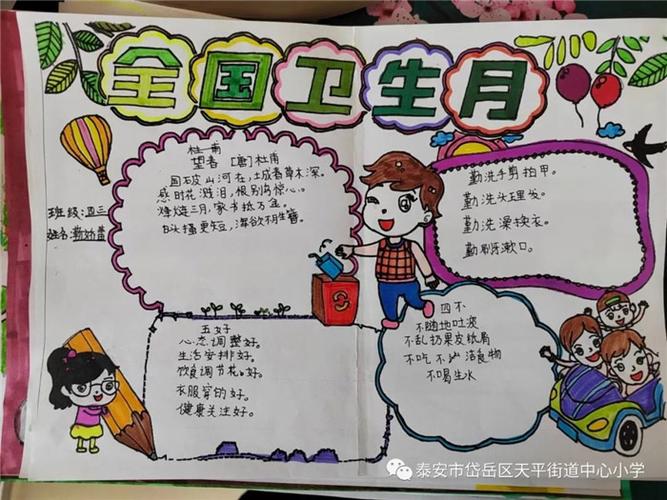 全国卫生月
杜甫
望春 [唐]杜甫
国破山河在,土成春草木深。
感时花溅泪,恨别鸟惊心。
烽火三月,家书抵万金。
白头搔更短,浑欲不胜簪。
班级:四三
姓名:
五好
心态调整好。
生活安排好。
饮食调节好。
衣服穿的好。
健康关注好。
勤洗手剪指甲。
勤洗头理发。
勤洗澡换衣。
勤刷牙漱口。
四不
不随地吐痰
不乱扔果皮纸屑
不吃不洁食物
不喝生水
泰安市岱岳区天平街道中心小学